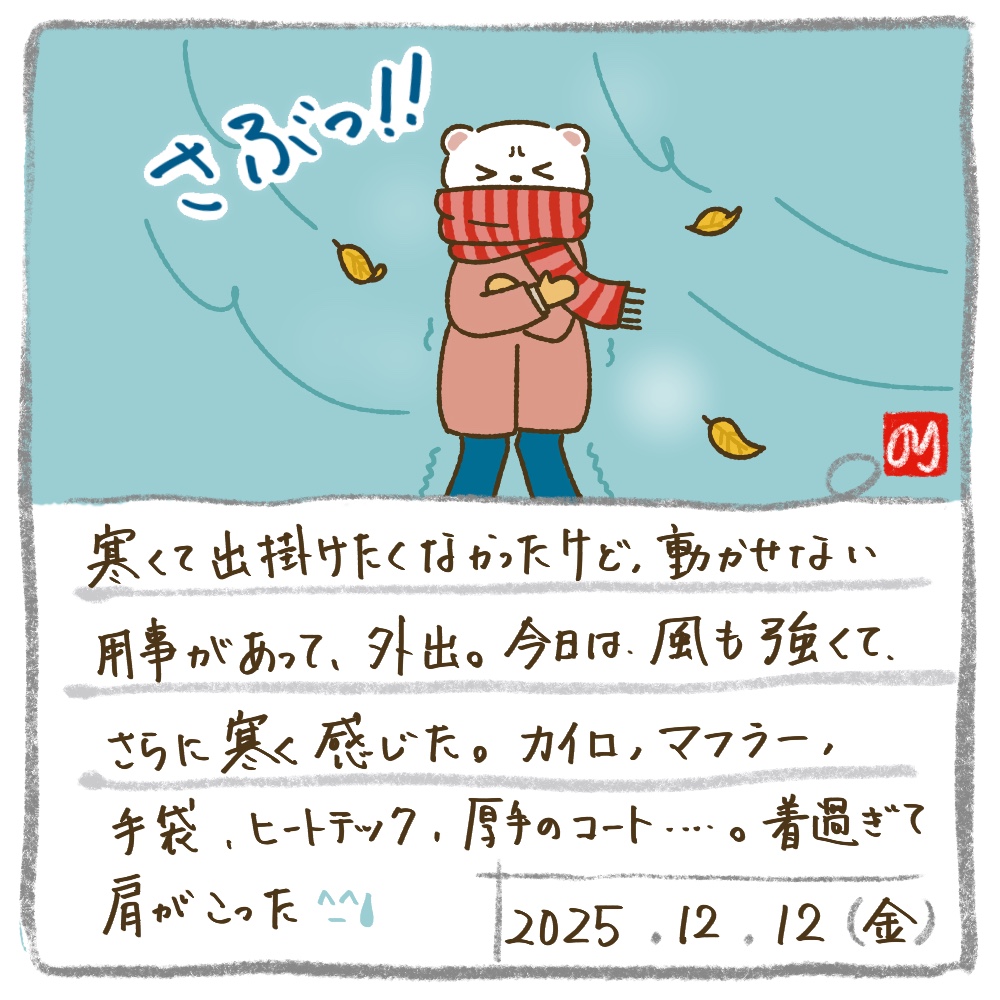 さぶっ!!
寒くて出掛けたくなかったけど、動かせない
用事があって、外出。今日は、風も強くて、
さらに寒く感じた。カイロ、マフラー、
手袋、ヒートテック、厚手のコート‥‥。着過ぎて
肩がこった ^^;
2025.12.12(金)